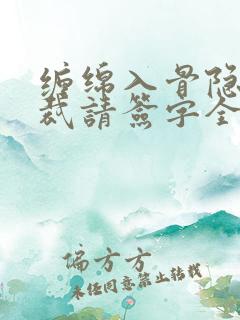 缠绵入骨隐
裁請簽字全
偏方方
未经同意禁止转载